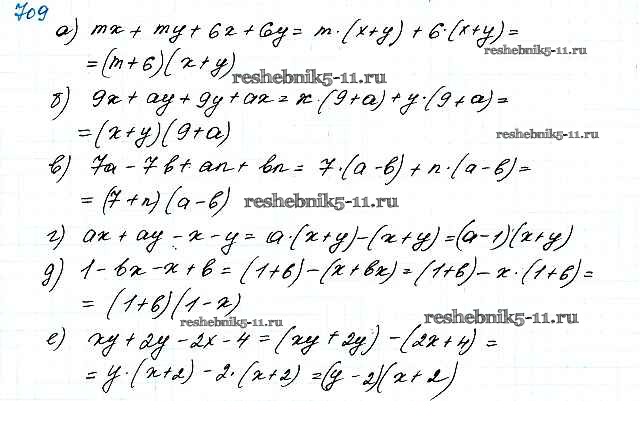 709
а) mx + my + 6x + 6y = m·(x+y) + 6·(x+y) =
reshebnik5-11.ru
= (m+6)(x+y)
reshebnik5-11.ru
б) 9x + ay + 9y + ax = x·(9+a) + y·(9+a) =
= (x+y)(9+a)
reshebnik5-11.ru
в) 7a - 7b + an + bn = 7·(a-b) + n·(a-b) =
= (7+n)(a-b)
reshebnik5-11.ru
г) ax + ay - x - y = a·(x+y) - (x+y) = (a-1)(x+y)
д) 1 - bx - x + b = (1+b) - (x+bx) = (1+b) - x·(1+b) =
= (1+b)(1-x)
reshebnik5-11.ru
reshebnik5-11.ru
е) xy + 2y - 2x - 4 = (xy + 2y) - (2x+4) =
= y·(x+2) - 2·(x+2) = (y-2)(x+2)